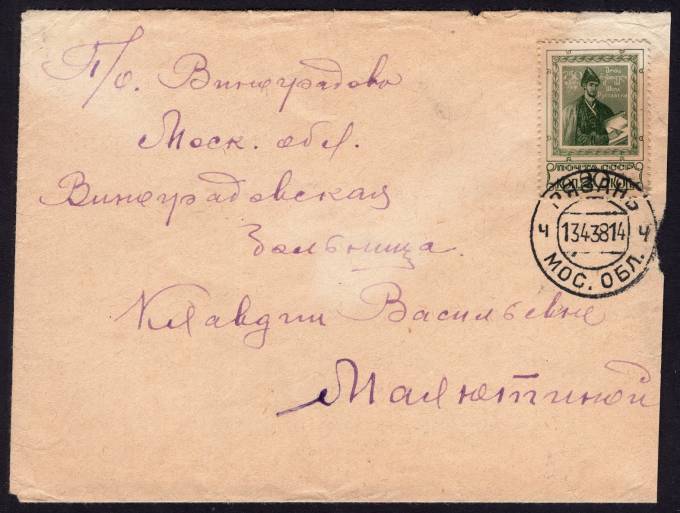 П/о. Виноградово
Моск. обл.
Виноградовская
больница.
Клавдии Васильевне
Малютиной
ПОЧТА СССР
20
РЯЗАНЬ
Ч 1343814 Ч
МОС. ОБЛ.